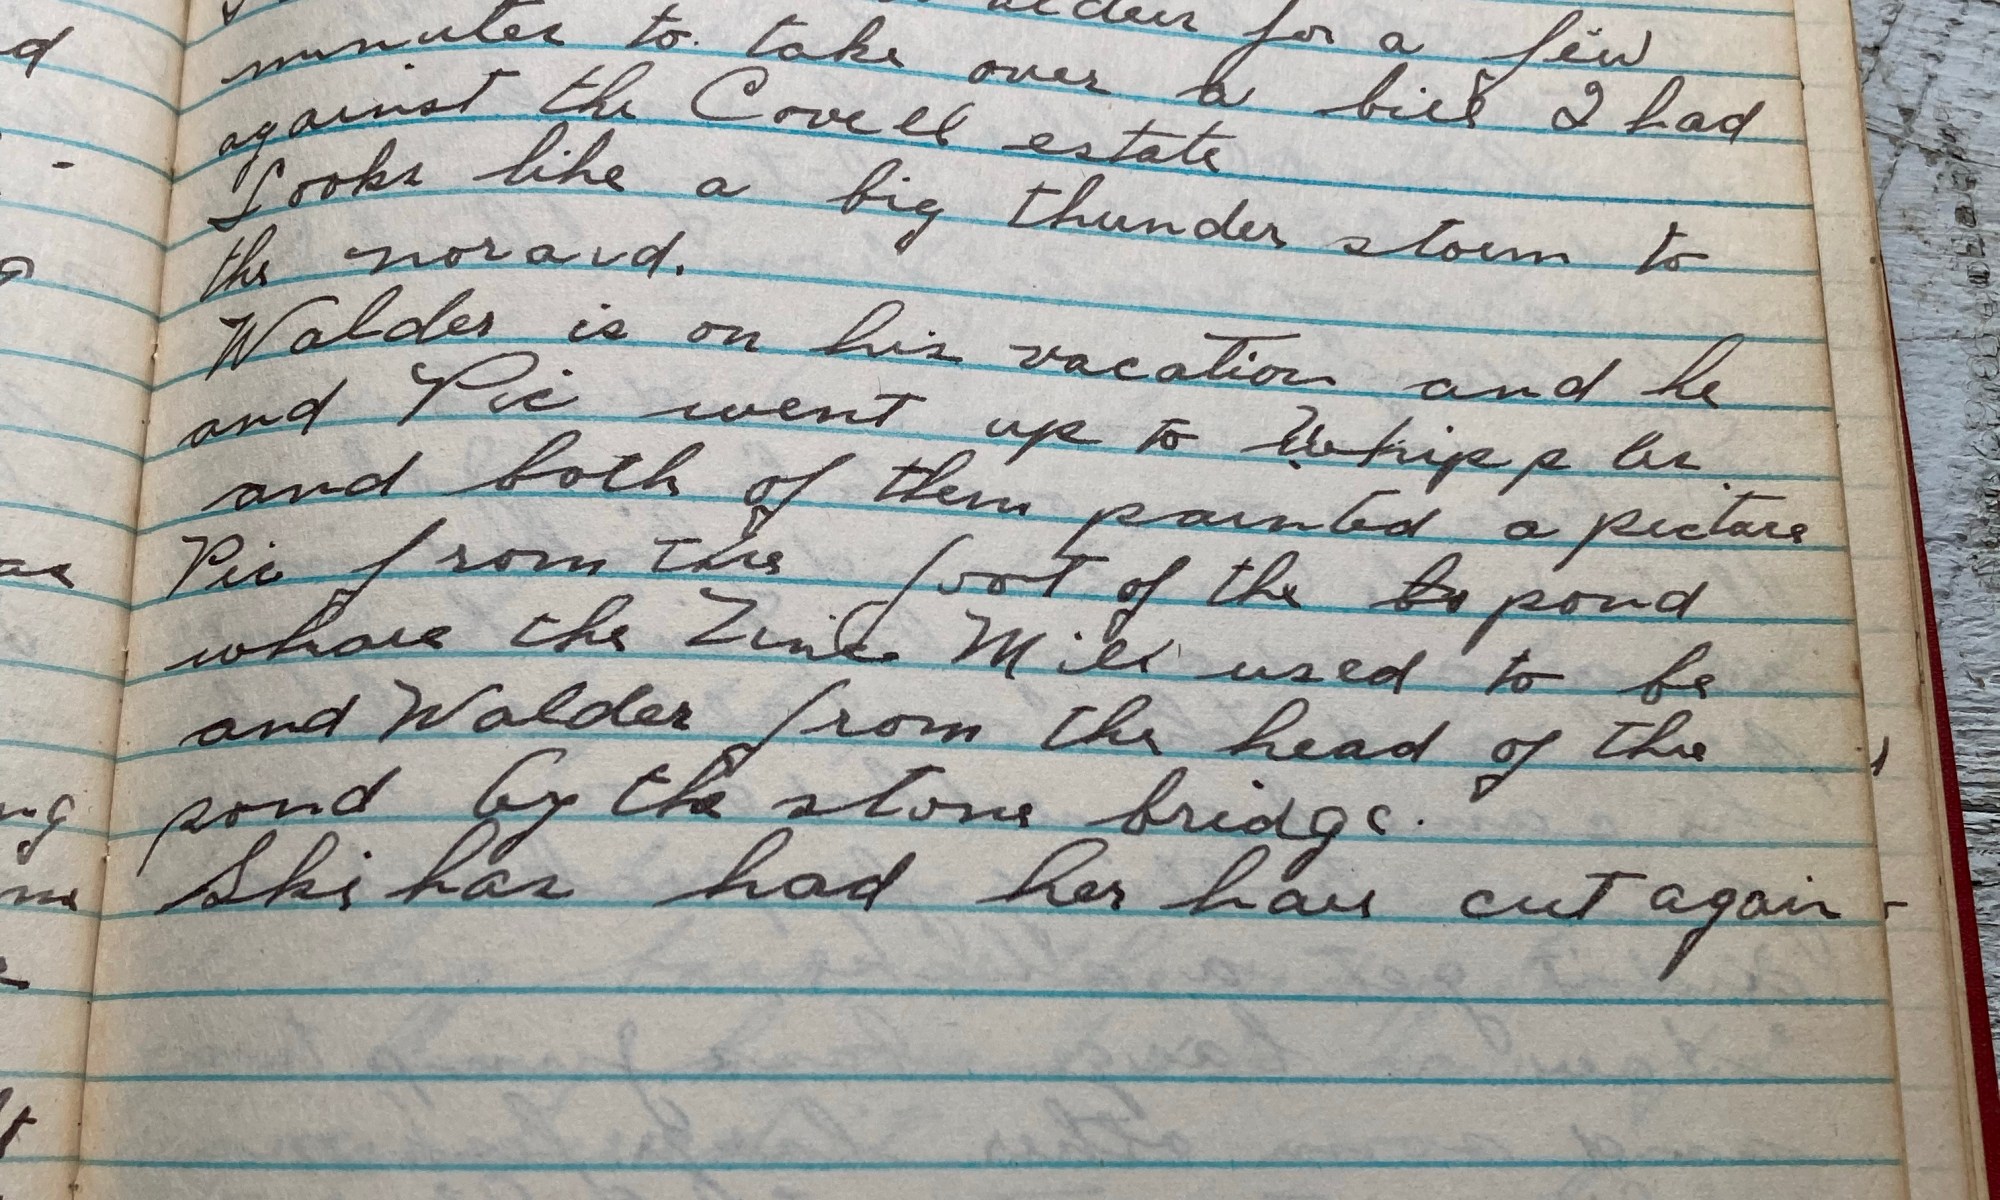 for a few
minutes to take over a bill I had
against the Covell estate
Looks like a big thunder storm to
the norard.
Walder is on his vacation and he
and Pic went up to Whipples
and both of them painted a picture
Pic from the foot of the to pond
whare the Zinc Mill used to be
and Walder from the head of the
pond by the stone bridge.
Ski has had her hair cut again